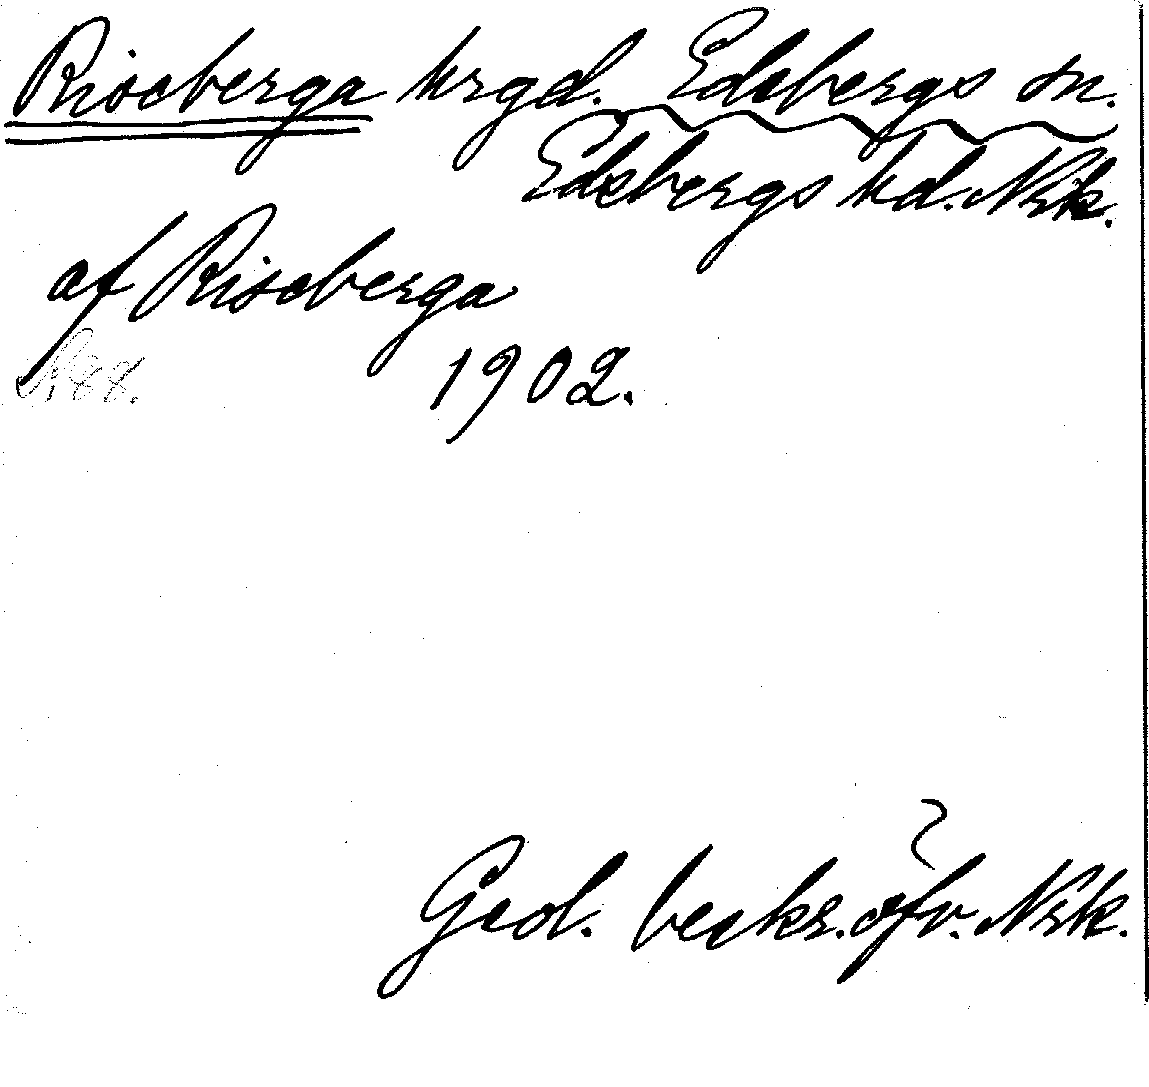 Riseberga hrgd. Edsbergs sn.
Edsbergs hd. Nrk.
af Riseberga
S. 88.
1902.
Geol. beskr. öfv. Nrk.